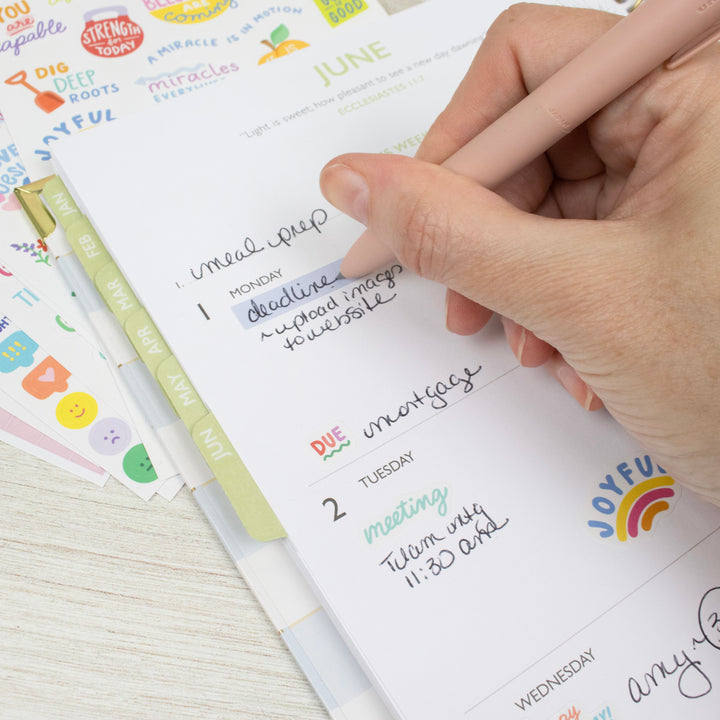 YOU are
capable
STRENGTH for
TODAY
COMING
GOOD
A MIRACLE IS IN MOTION
DIG
DEEP
ROOTS
miracles
JOYFUL
JUNE
"Light is sweet; how pleasant to see a new day dawning
ECCLESIASTES 11:7
WEEK
meal prep
1.
MONDAY
1
deadline
~upload images
to website
DUE
mortgage
TUESDAY
2
meeting
Team mtg
11:30
JOYFUL
WEDNESDAY
amy~
JAN
FEB
MAR
APR
MAY
JUN